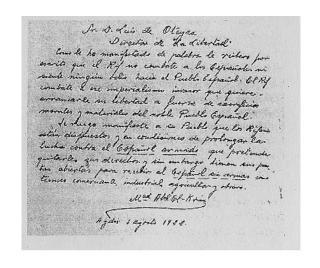 Sr. D. Luis de Oteyza
Director de "La Libertad"
Como le he manifestado de palabra le reitero por
escrito que el Rif no combate a los Españoles ni
siente ningún odio hacia el Pueblo Español. El Rif
combate á ese imperialismo invasor que quiere
arrancarle su libertad a fuerza de sacrificios
morales y materiales del noble Pueblo Español.
Le ruego manifieste a su Pueblo que los Rifeños
están dispuestos y en condiciones de prolongar la
lucha contra el Español armado que pretende
quitarles sus derechos y sin embargo tienen sus puer-
tas abiertas para recibir al Español sin armas como
técnico comerciante, industrial, agricultor y obrero.
Abd-El-Krim
Agdir 2 agosto 1922.